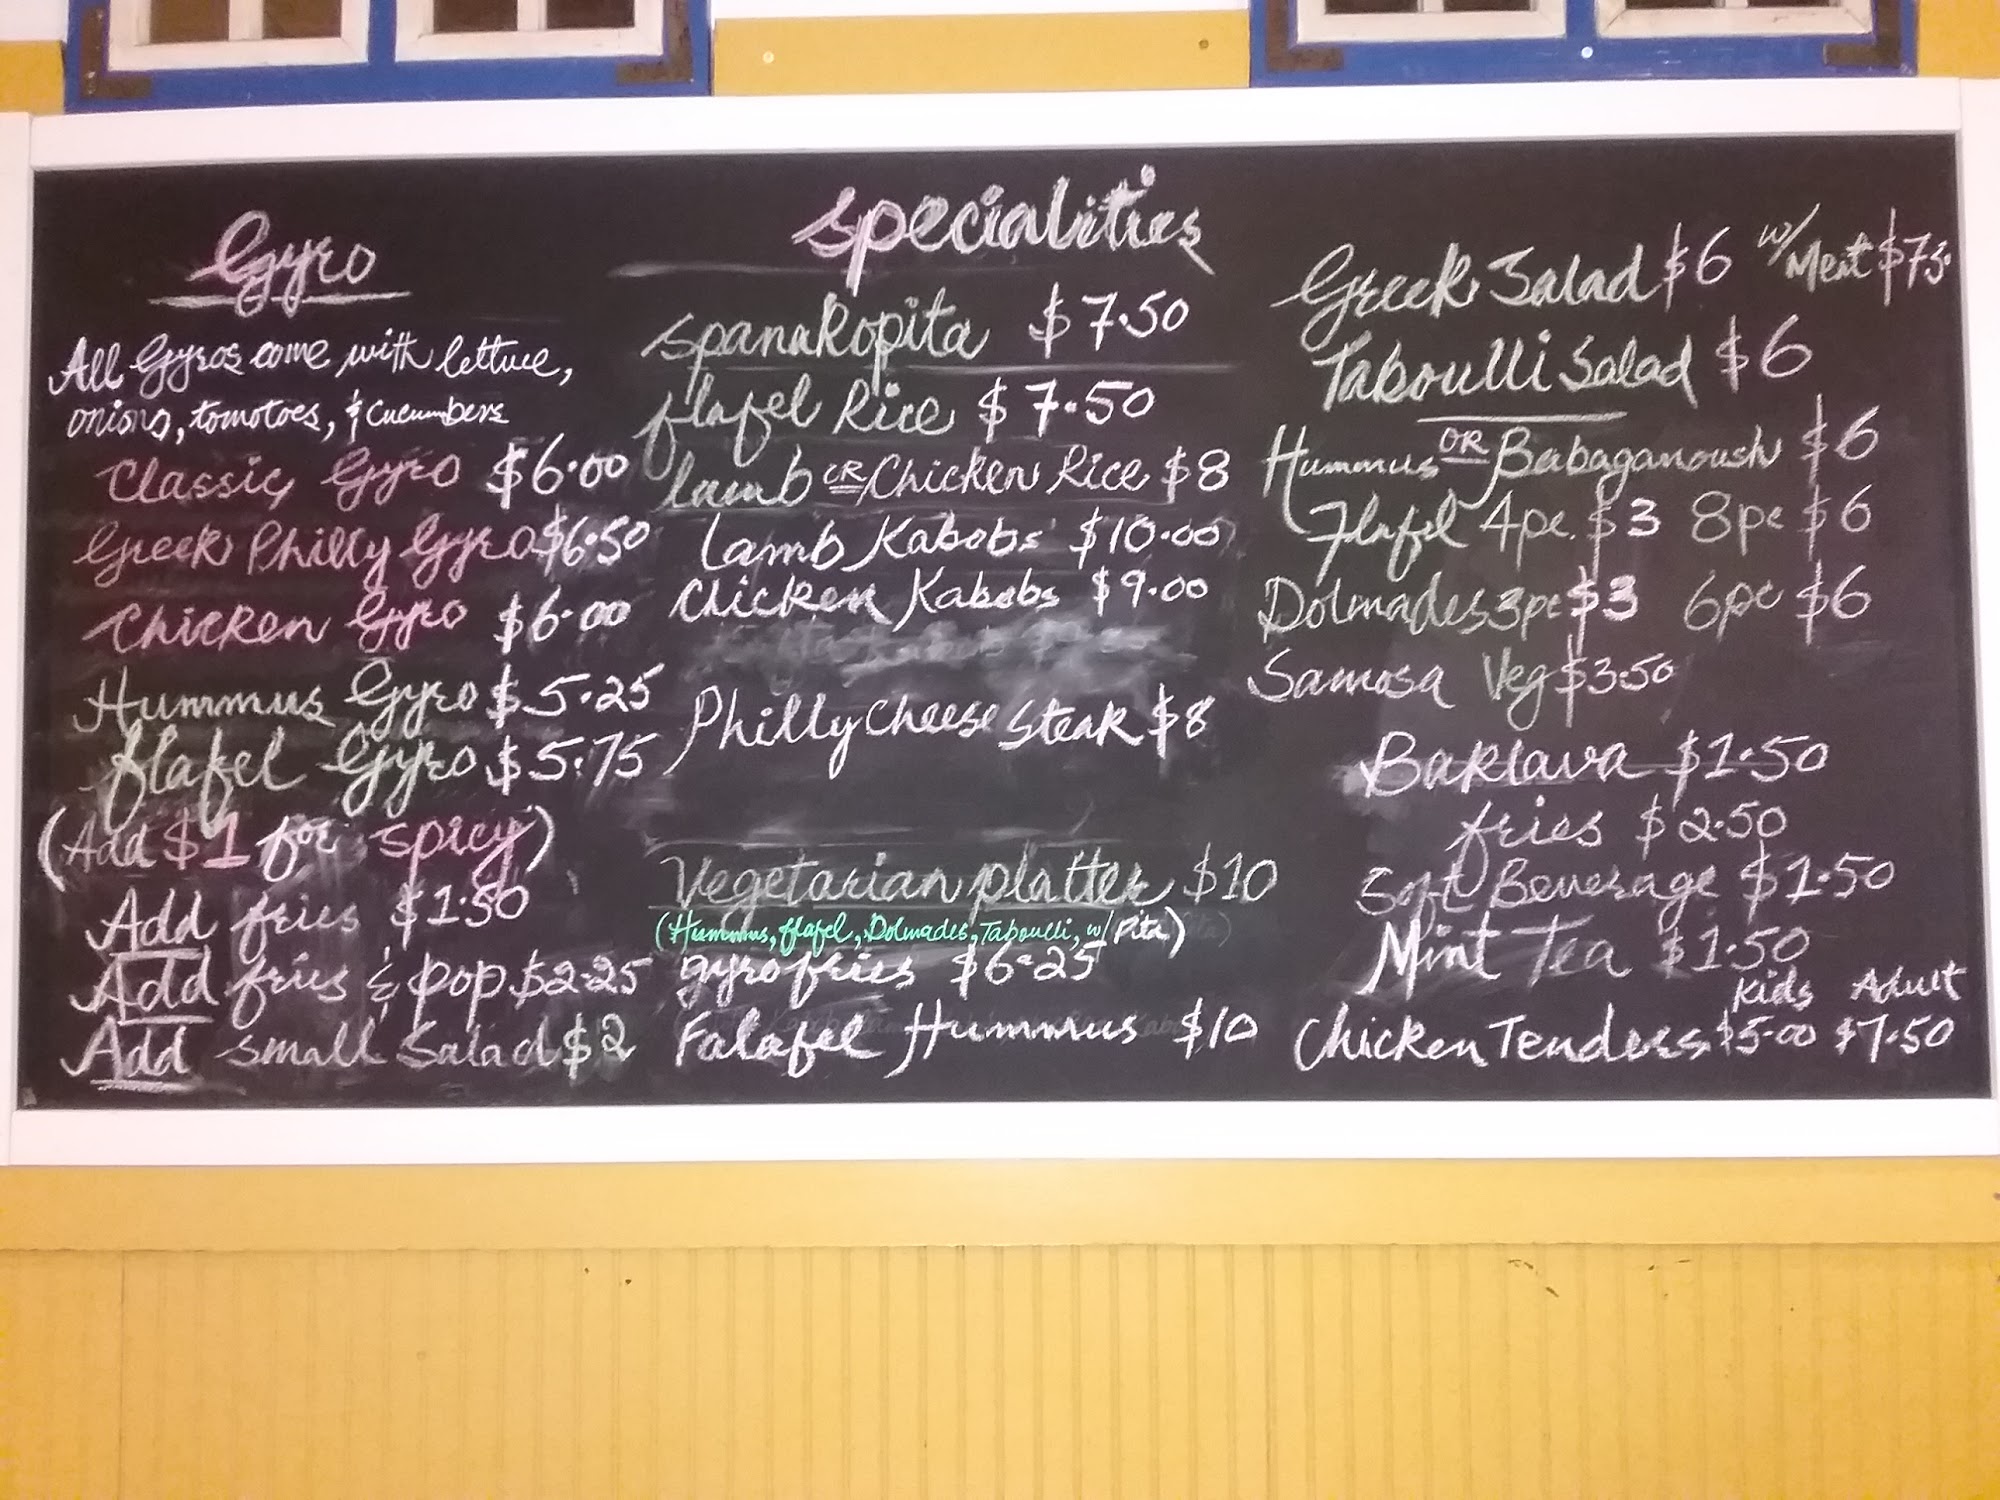 Gyro
All Gyros come with lettuce,
onions, tomotoes, & cucumbers
Classic Gyro $6.00
Greek Philly Gyro $6.50
Chicken Gyro $6.00
Hummus Gyro $5.25
flafel Gyro $5.75
(Add $1 for spicy)
Add fries $1.50
Add fries & pop $2.25
Add small Salad $2
specialities
spanakopita $7.50
flafel Rice $7.50
lamb OR Chicken Rice $8
Lamb Kabobs $10.00
Chicken Kabobs $9.00
Philly Cheese Steak $8
Vegetarian platter $10
(Hummus, flafel, Dolmades, Taboulli, w/ Pita)
gyro fries $6.25
Falafel Hummus $10
Greek Salad $6 w/ Meat
Taboulli Salad $6
Hummus OR Babaganoush $6
Flafel 4pc. $3 8pc $6
Dolmades 3pc $3 6pc $6
Samosa Veg $3.50
Baklava $1.50
fries $2.50
Soft Beverage $1.50
Mint Tea $1.50
Kids Adult
Chicken Tenders $5.00 $7.50